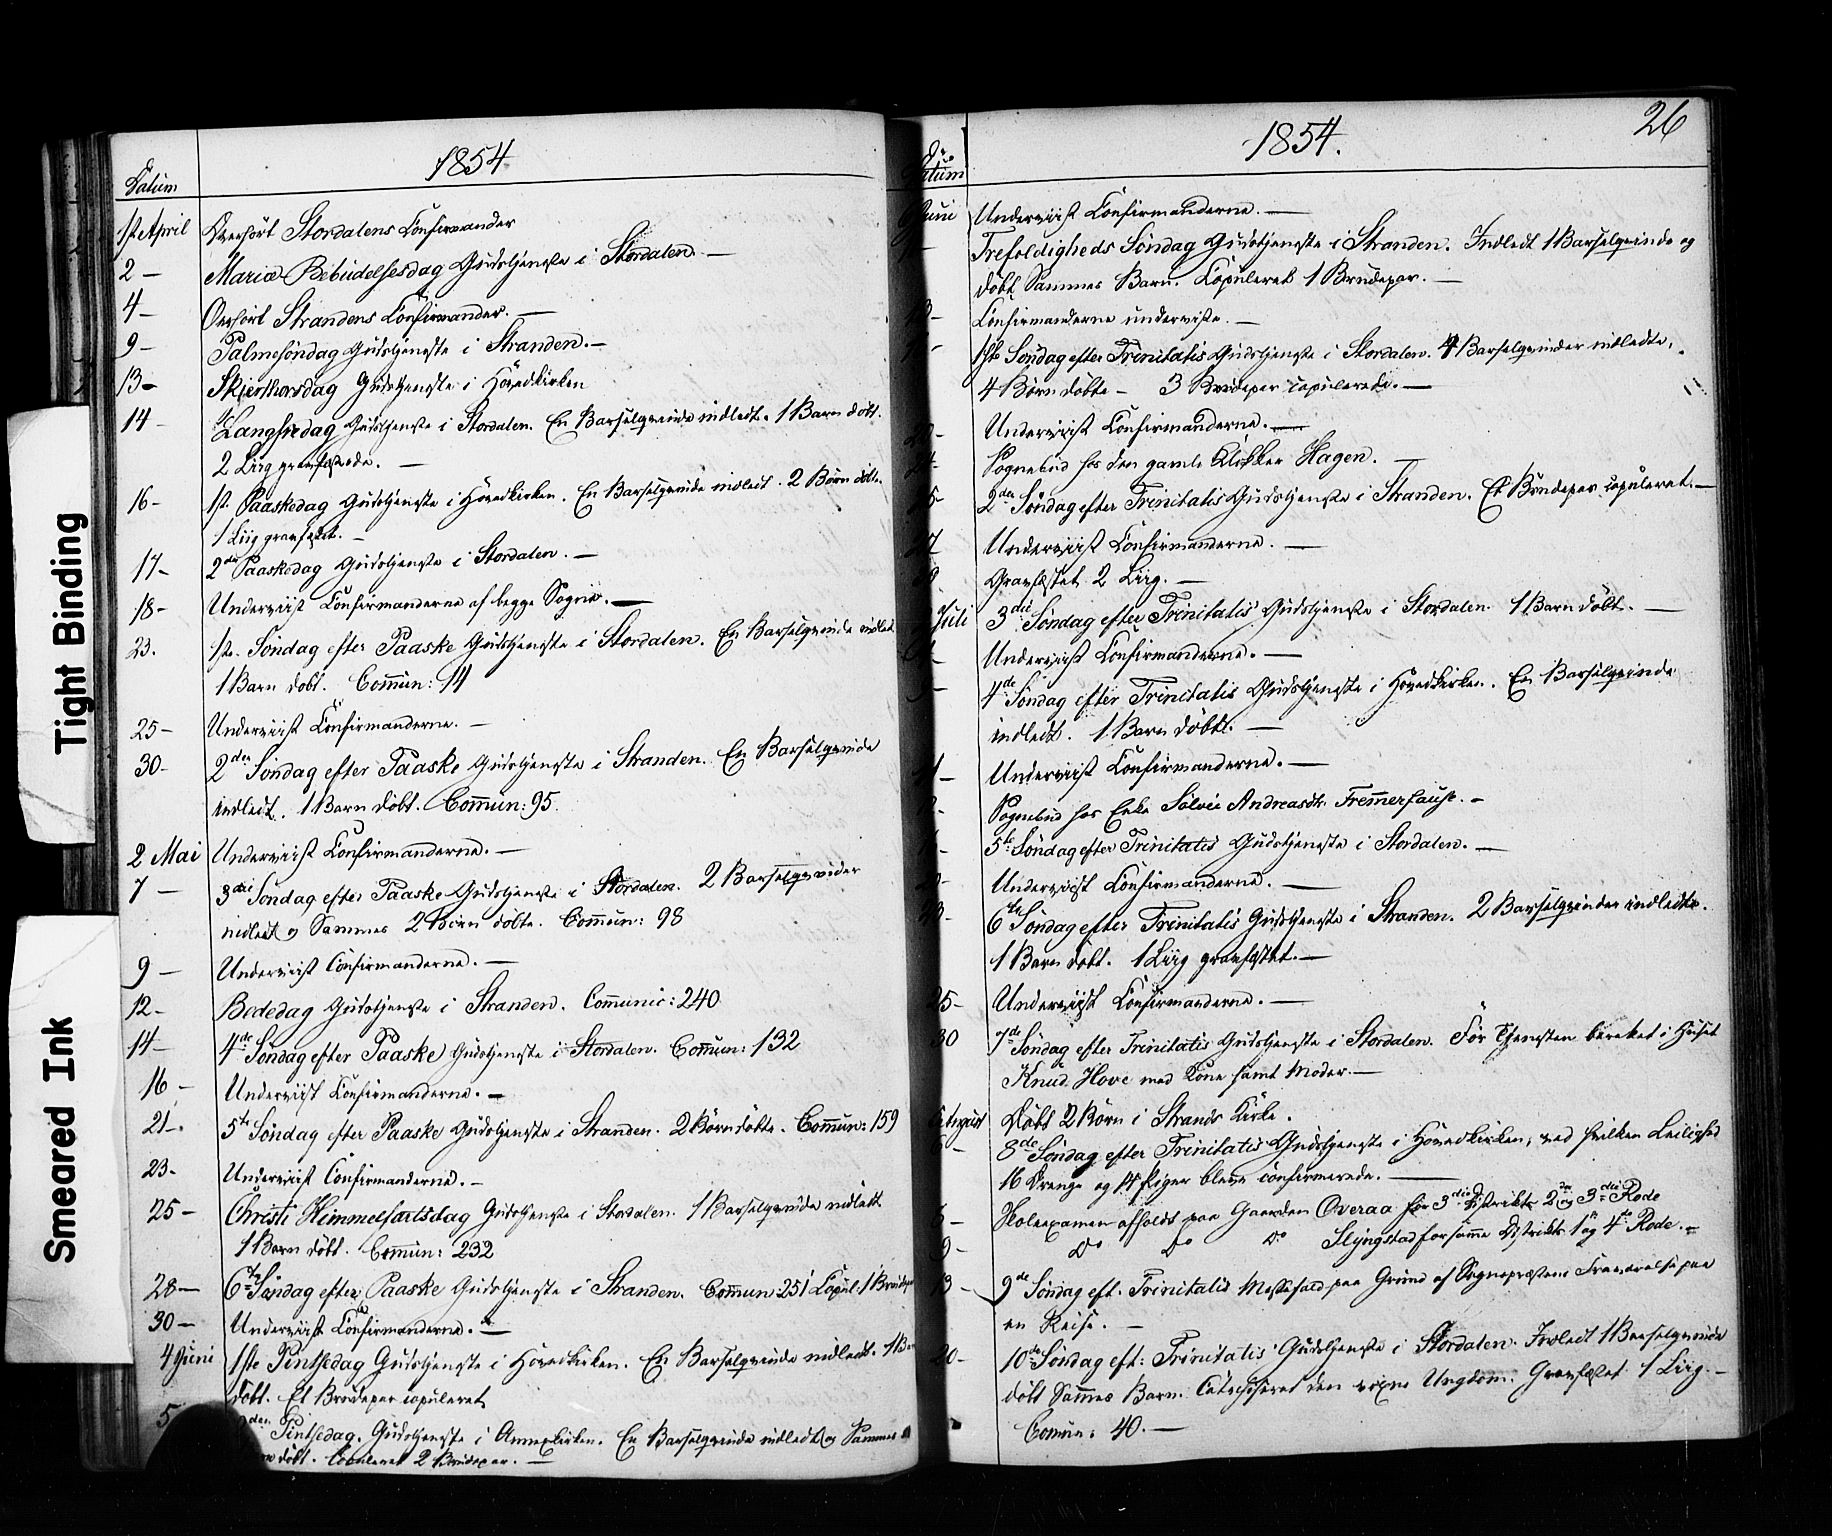 1854
Datum
1ste April Overhört Stordalens Confirmander
2 — Mariæ Bebudelsesdag Gudstjeneste i Stordalen. —
4 — Overhört Strandens Confirmander. —
9 — Palmesöndag Gudstjeneste i Stranden. —
13 — Skjerthorsdag Gudstjeneste i Hovedkirken
14 — Langfredag Gudstjeneste i Stordalen. En Barselqvinde indledt. 1 Barn döbt.
2 Liig gravfæstede. —
16 — 1ste Paaskedag Gudstjeneste i Hovedkirken. En Barselqvinde indledt. 2 Börn döbte.
1 Liig gravfæstet. —
17 — 2den Paaskedag Gudstjeneste i Stordalen. —
18 — Underviist Confirmanderne af begge Sogne. —
23. 1ste Söndag efter Paaske Gudstjeneste i Stordalen. En Barselqvinde indledt
1 Barn döbt. Commun: 14
25 — Underviist Confirmanderne. —
30 — 2den Söndag efter Paaske Gudstjeneste i Stranden. En Barselqvinde
indledt. 1 Barn döbt. Commun: 95.
2 Mai Underviist Confirmanderne. —
7 — 3die Söndag efter Paaske Gudstjeneste i Stordalen. 2 Barselqvinder
indledt og Sammes 2 Börn döbte. Commun: 98
9 — Underviist Confirmanderne. —
12 — Bededag Gudstjeneste i Stranden. Communic: 240
14 — 4de Söndag efter Paaske Gudstjeneste i Stordalen. Commun: 132
16 — Underviist Confirmanderne. —
21 — 5te Söndag efter Paaske Gudstjeneste i Stranden. 2 Börn döbte. Commun: 159
23 — Underviist Confirmanderne. —
25 — Christi Himmelfartsdag Gudstjeneste i Stordalen. 1 Barselqvinde indledt
1 Barn döbt. Commun: 232
28 — 6te Söndag efter Paaske Gudstjeneste i Stranden. Commun 251 Copul: 1 Brudepar
30 — Underviist Confirmanderne. —
4 Juni 1ste Pintsedag Gudstjeneste i Hovedkirken. En Barselqvinde indledt. 1 Barn
döbt. Et Brudepar copuleret
5 Pintsedag. Gudstjeneste i Annexkirken. En Barselqvinde indledt og Sammes
döbt. Copuleret 2 Brudepar. —
26
1854.
Datum
Juni Underviist Confirmanderne. —
Trefoldigheds Söndag Gudstjeneste i Stranden. Indledt 1 Barselqvinde og
döbt Sammes Barn. Copuleret 1 Brudepar. —
Confirmanderne underviste. —
1ste Söndag efter Trinitatis Gudstjeneste i Stordalen. 4 Barselqvinder indledte.
4 Börn döbte — 3 Brudepar copulerede. —
Underviist Confirmanderne. —
Sognebud hos den gamle Klokker Hagen. —
2den Söndag efter Trinitatis Gudstjeneste i Stranden. Et Brudepar copuleret. —
Underviist Confirmanderne. —
Gravfæstet 2 Liig. —
Juli 3die Söndag efter Trinitatis Gudstjeneste i Stordalen. 1 Barn döbt. —
Underviist Confirmanderne. —
4de Söndag efter Trinitatis Gudstjeneste i Hovedkirken. En Barselqvinde
indledt. 1 Barn döbt. —
Underviist Confirmanderne. —
Sognebud hos Enke Sølvie Andreasdtr. —
5te Söndag efter Trinitatis Gudstjeneste i Stordalen. —
Underviist Confirmanderne. —
6te Söndag efter Trinitatis Gudstjeneste i Stranden. 2 Barselqvinder indledte.
1 Barn döbt. 1 Liig gravfæstet. —
25 — Underviist Confirmanderne. —
30 7de Söndag efter Trinitatis Gudstjeneste i Stordalen. För Tjenesten berettet i Huset
Knud Hove med Kone samt Moder. —
August Döbt 2 Börn i Strands Kirke.
8de Söndag efter Trinitatis Gudstjeneste i Hovedkirken, ved hvilken Leilighed
16 Drenge og 14 Piger bleve confirmerede. —
Skoleexamen afholdt paa Gaarden Overaa for 3die Distrikts 2den og 3die Rode
9 — Do Do Do Slyngstad for samme Distrikts 1ste og 4de Rode. —
13 — 9de Söndag eft. Trinitatis Messefald paa Grund af Sognepræstens Fraværelse paa
en Reise. —
20 — 10de Söndag eft: Trinitatis Gudstjeneste i Stordalen. Indledt 1 Barselqvinde
döbt Sammes Barn. Catechiseret den voxne Ungdom. Gravfæstet 1 Liig. —
Commun: 40. —
Tight Binding
Smeared Ink